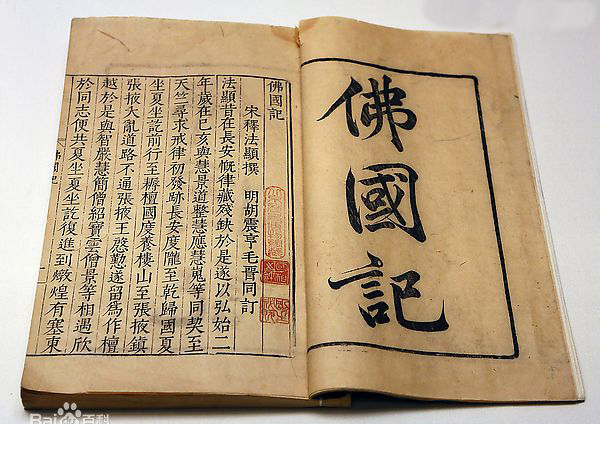 佛國記
佛國記
宋釋法顯撰 明胡震亨毛晉同訂
法顯昔在長安慨律藏殘缺於是遂以弘始二
年歲在己亥與慧景道整慧應慧嵬等同契至
天竺尋求戒律初發跡長安度隴至乾歸國夏
坐夏坐訖前行至耨檀國度養樓山至張掖鎮
張掖大亂道路不通張掖王慇懃遂留爲作檀
越於是與智嚴慧簡僧紹寶雲僧景等相遇欣
於同志便共夏坐夏坐訖復進到燉煌有塞東
佛國記
Bai百科